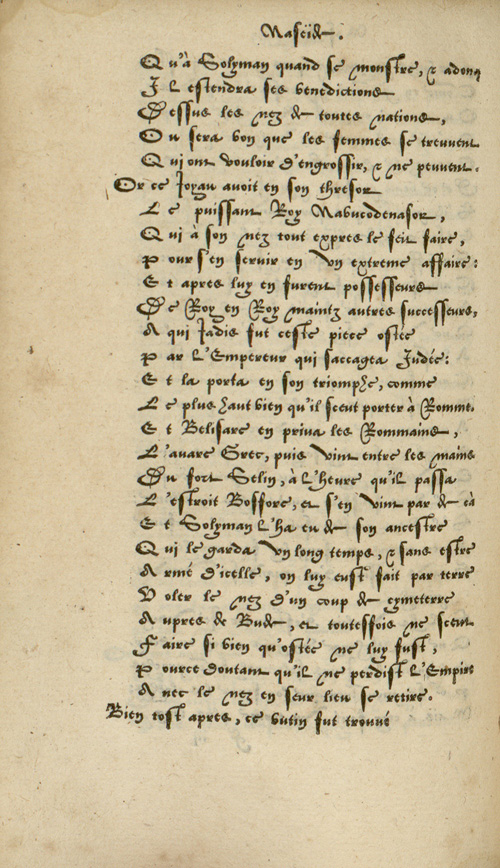 Naseïde.
Qu'à Solyman quand se monstre, & adonq
Il estendra ses benedictions
Dessus les nez de toutes nations,
Ou sera bon que les femmes se treuvent
Qui ont vouloir d'engrossir, & ne peuvent.
Or ce Joyau avoit en son thresor
Le puissant Roy Nabucodenasor,
Qui à son nez tout expres le feit faire,
Pour s'en servir en Vn extreme affaire:
Et apres luy en furent possesseurs
De Roy en Roy maintz autres successeurs,
A qui Jadis fut ceste piece ostée
Par L'Empereur qui saccagea Judée:
Et la porta en son triomphe, comme
Le plus haut bien qu'il sceut porter à Romme.
Et Belisare en priva les Rommains,
L'avare Grec, puis Vint entre les mains
Du fort Selin, à L'heure qu'il passa
L'estroit Bosfore, et s'en Vint par de çà
Et Solyman L'ha eu de son ancestre
Qui le garda Vn long temps, & sans estre
Armé d'icelle, on luy eust fait par terre
Voler le nez d'un coup de cymeterre
Aupres de Bude, et toutesfois ne sceut
Faire si bien qu'ostée ne luy fust,
Pource doutant qu'il ne perdist L'Empire
Avec le nez en seur lieu se retire.
Bien tost apres, ce butin fut trouvé